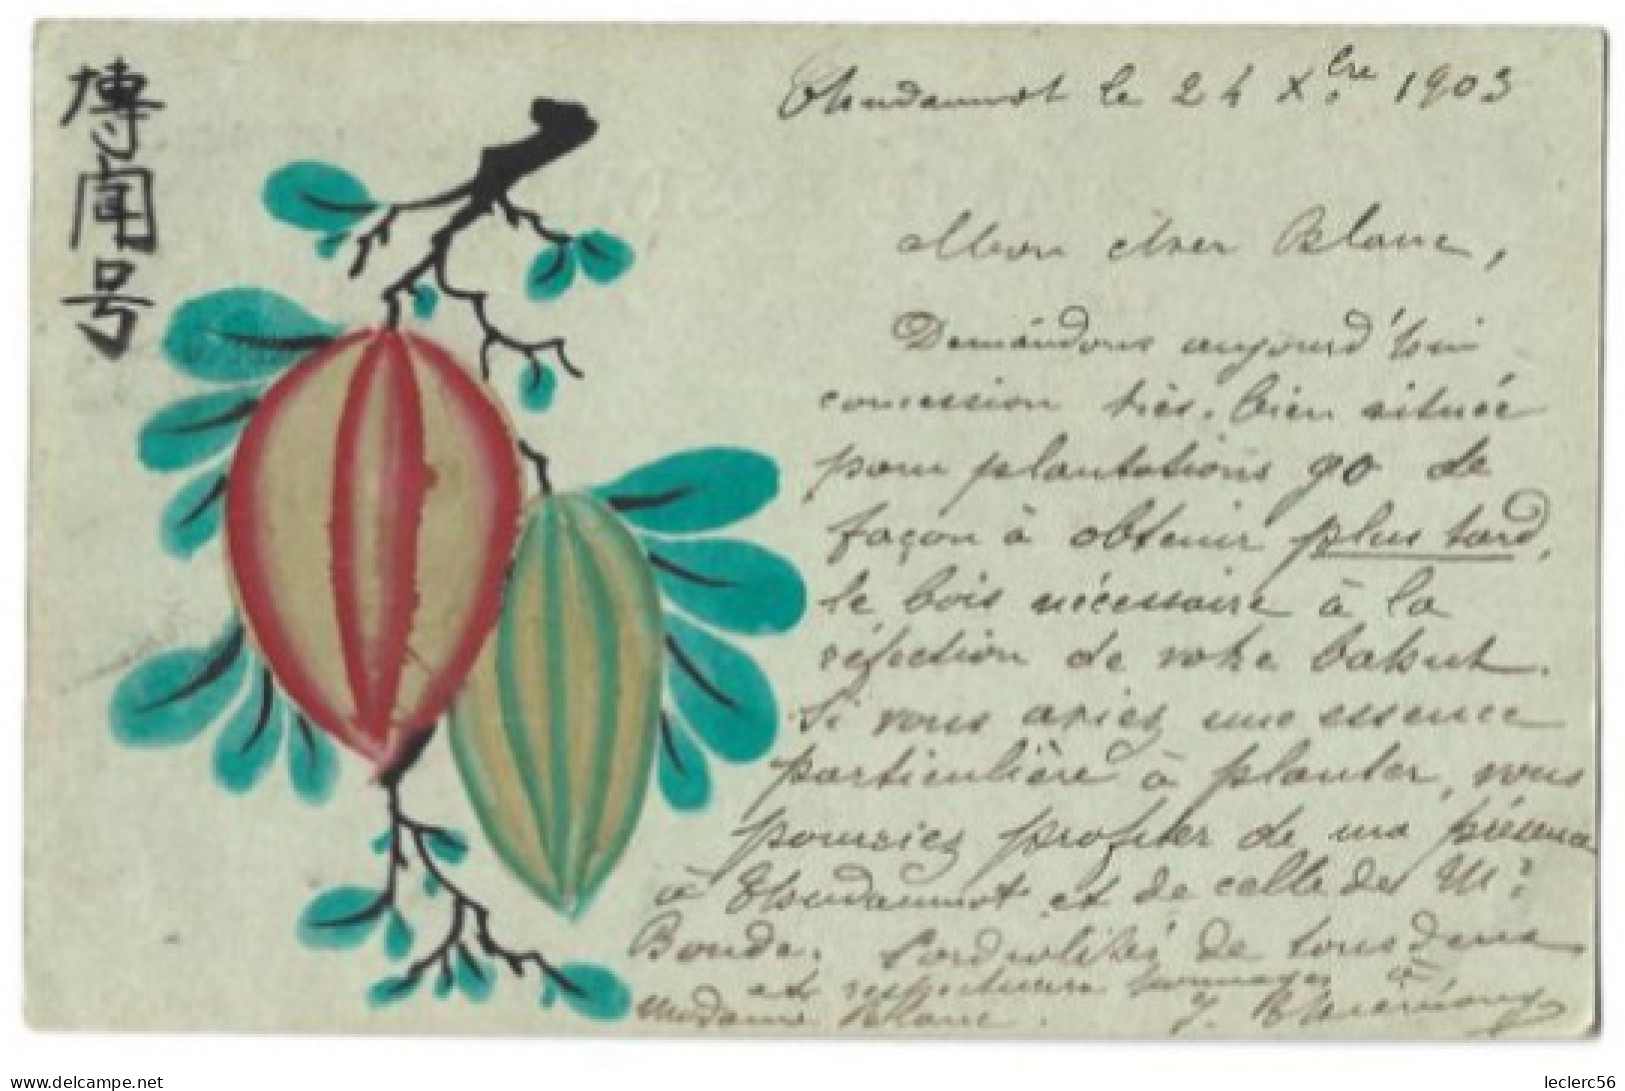 傳
聞
号
Thudaumot le 24 Xbre 1903
Mon cher Blanc,
Demandons aujourd'hui
concession très bien située
pour plantations go de
façon à obtenir plus tard,
le bois nécessaire à la
réfection de votre bahut.
Si vous aviez une essence
particulière à planter, vous
pourriez profiter de ma présence
à Thudaumot et de celle de Mr
Bonde. Cordialités de tous deux
et respectueux hommages à
Madame Blanc. J.
leclerc56